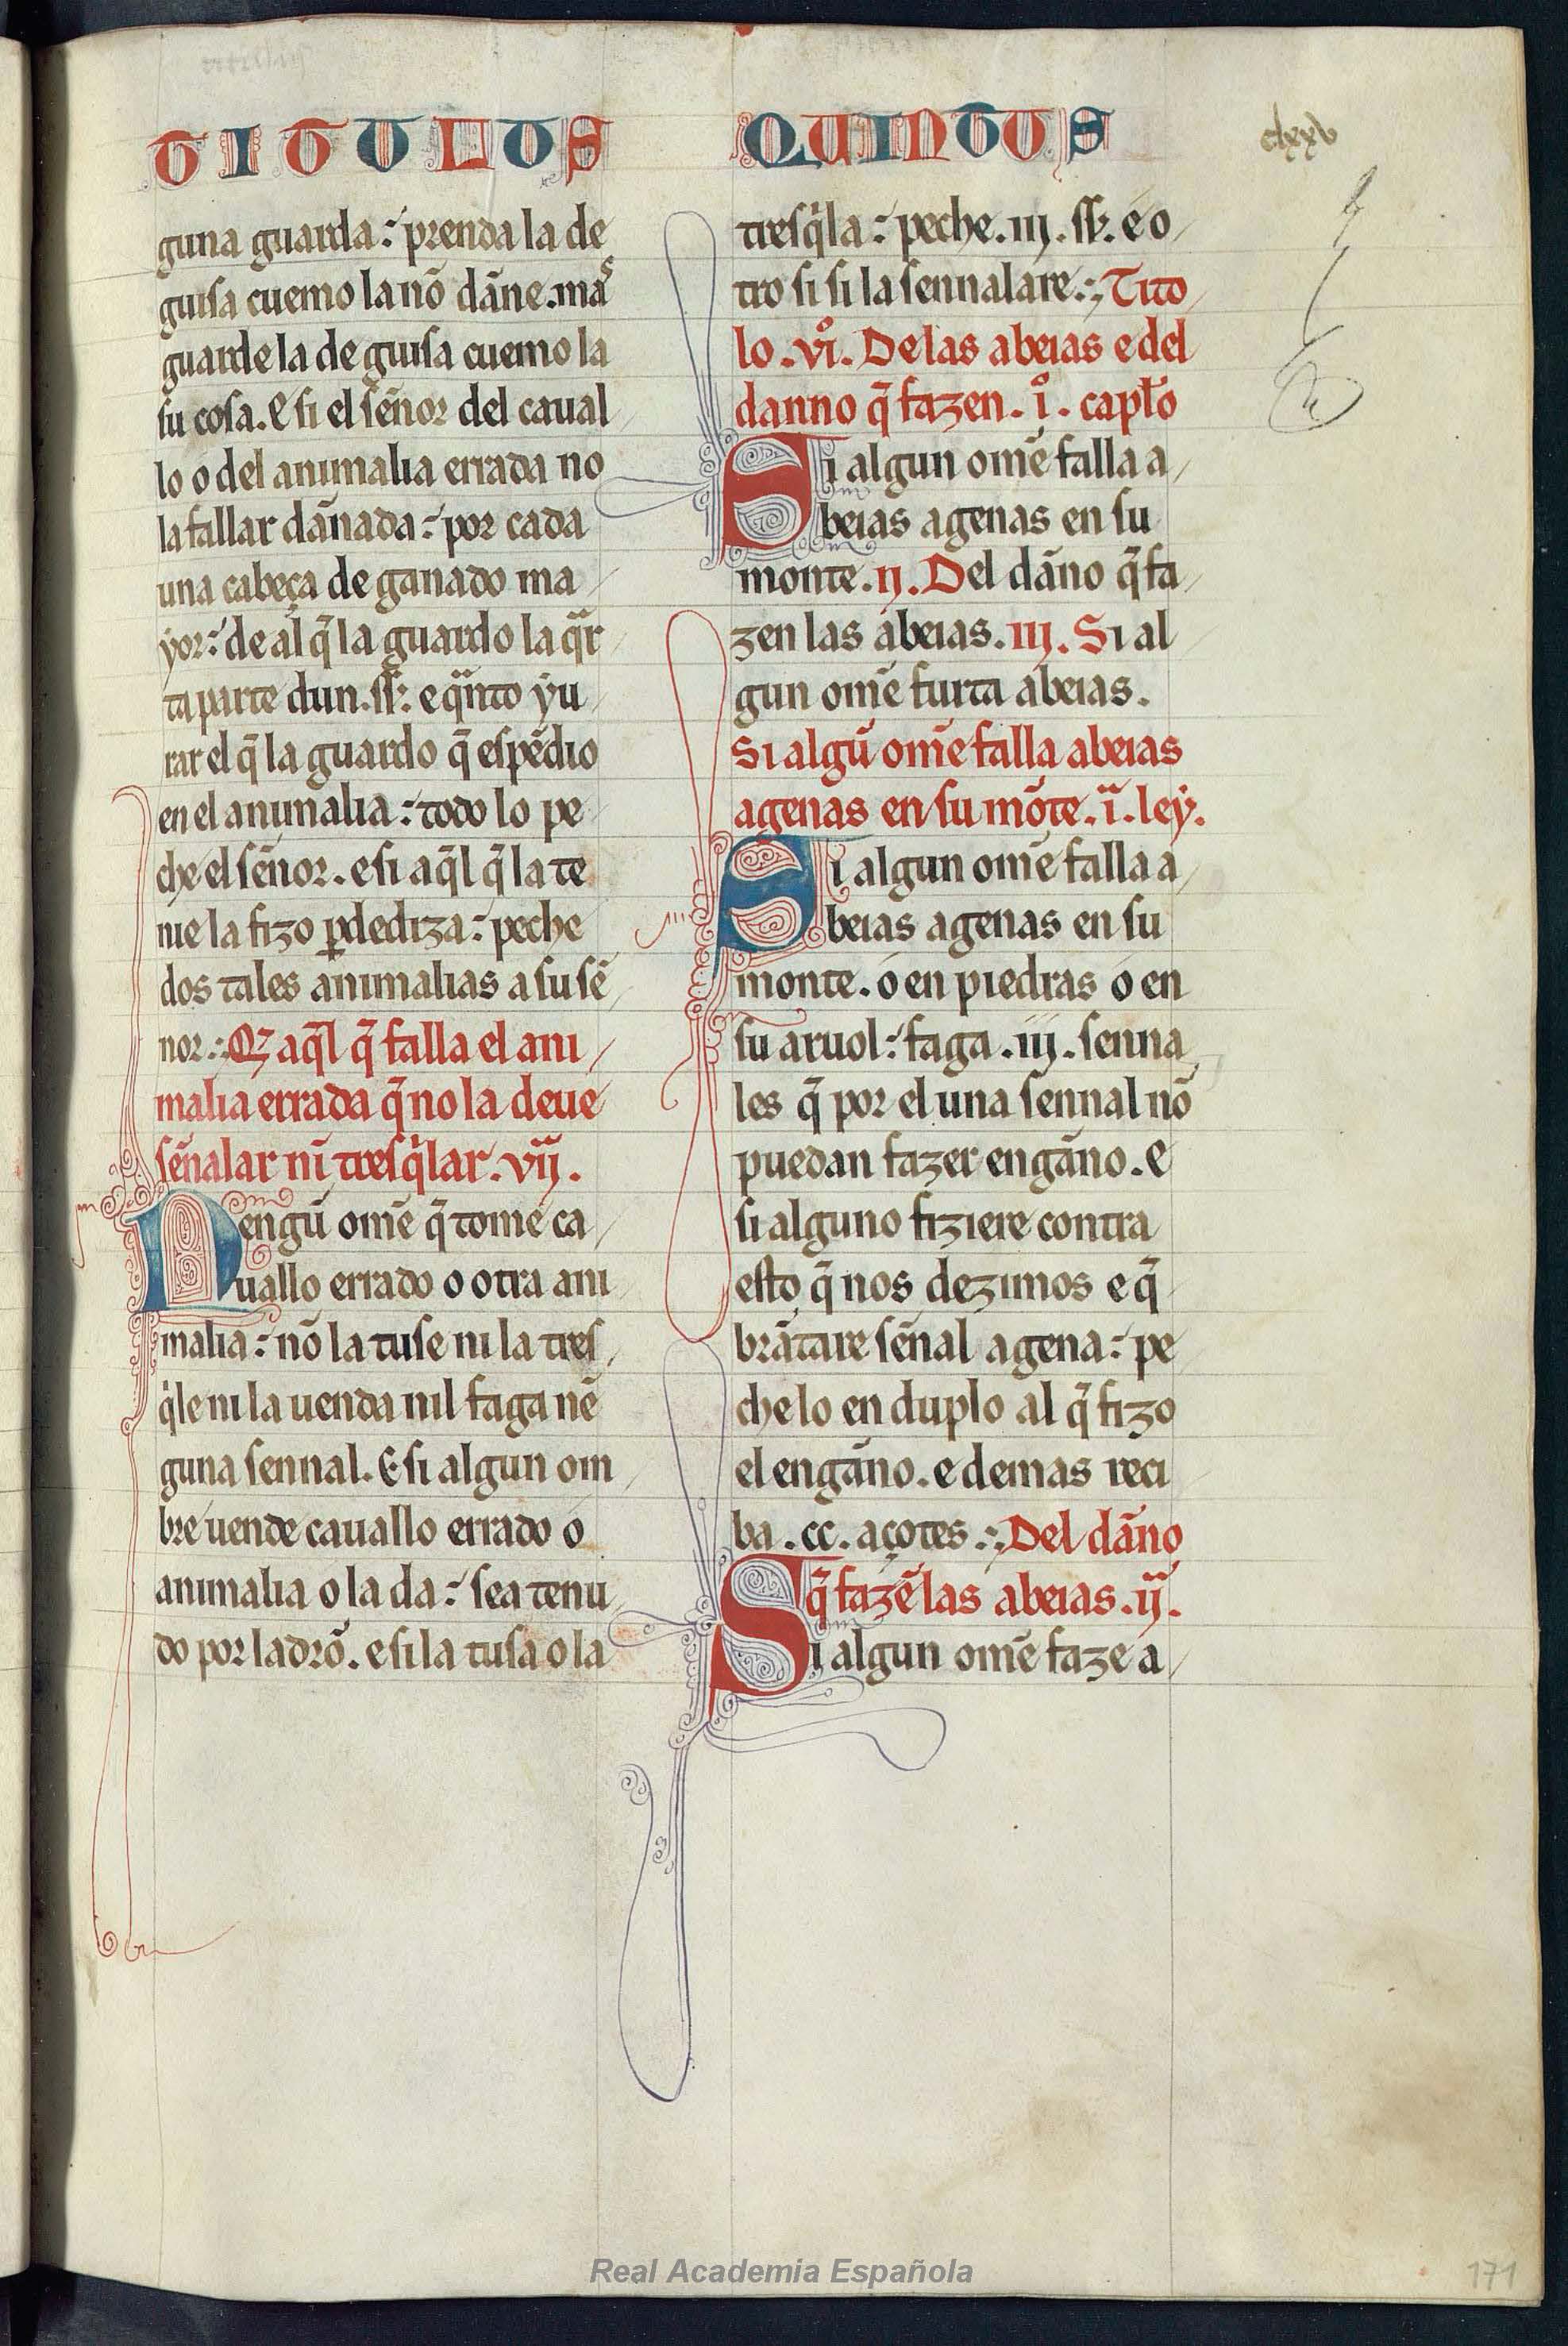 TITULUS QUINTUS
clxxv
guna guarda: prenda la de
guisa cuemo la nõ dãne. mas
guarde la de guisa cuemo la
su cosa. E si el sẽnor del caual
lo o del animalia errada no
la fallar dãnada: por cada
una cabeça de ganado ma
yor: de al q̃ la guardo la qͣr
ta parte dun. sł. e qͣnto yu
rar el q̃ la guardo q̃ espẽdio
en el animalia: todo lo pe
che el sẽnor. e si aq̃l q̃ la te
nie la fizo ꝑdediza: peche
dos tales animalias a su sẽ
nor. Q̃ aq̃l q̃ falla el ani
malia errada q̃ no la deue
sẽnalar nĩ tresq̇lar. vij.
Nengũ omẽ q̃ tome ca
uallo errado o otra ani
malia: nõ la tuse ni la tres
q̇le ni la uenda nil faga nẽ
guna sennal. E si algun om
bre uende cauallo errado o
animalia o la da: sea tenu
do por ladrõ. e si la tusa o la
tresq̇la: peche. iij. sł. e o
tro si si la sennalare. Tito
lo. viº. De las abeias e del
danno q̃ fazen. iº. capło
Si algun omẽ falla a
beias agenas en su
monte. ij. Del dãno q̃ fa
zen las abeias. iij. Si al
gun omẽ furta abeias.
Si algũ omẽ falla abeias
agenas en su mõte. iͣ. ley.
Si algun omẽ falla a
beias agenas en su
monte. o en piedras o en
su aruol: faga. iij. senna
les q̃ por el una sennal nõ
puedan fazer engãno. e
si alguno fiziere contra
esto q̃ nos dezimos e q̃
brãtare sẽnal agena: pe
che lo en duplo al q̃ fizo
el engãno. e demas reci
ba. cc. açotes. Del dãno
q̃ fazẽ las abeias. ij.
Si algun omẽ faze a
Real Academia Española
171